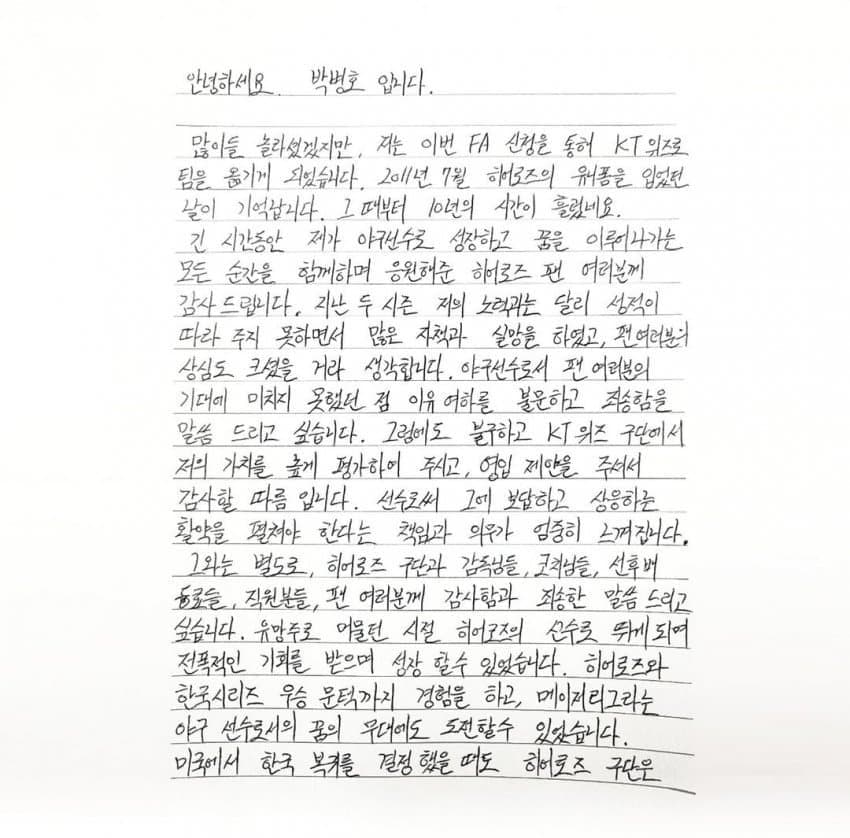 안녕하세요. 박병호 입니다.
많이들 놀라셨겠지만, 저는 이번 FA 신청을 통해 KT위즈로
팀을 옮기게 되었습니다. 2011년 7월 히어로즈의 유니폼을 입었던
날이 기억납니다. 그 때부터 10년의 시간이 흘렀네요.
긴 시간동안 제가 야구선수로 성장하고 꿈을 이루어나가는
모든 순간을 함께하며 응원해준 히어로즈 팬 여러분께
감사 드립니다. 지난 두 시즌 저의 노력과는 달리 성적이
따라 주지 못하면서 많은 자책과 실망을 하였고, 팬여러분의
상심도 크셨을 거라 생각합니다. 야구선수로서 팬 여러분의
기대에 미치지 못했던 점 이유 여하를 불문하고 죄송함을
말씀 드리고 싶습니다. 그럼에도 불구하고 KT 위즈 구단에서
저의 가치를 높게 평가하여 주시고, 영입 제안을 주셔서
감사할 따름 입니다. 선수로써 그에 보답하고 상응하는
활약을 펼쳐야 한다는 책임과 의무가 엄중히 느껴집니다.
그와는 별도로, 히어로즈 구단과 감독님들, 코치님들, 선후배
동료들, 직원분들, 팬 여러분께 감사함과 죄송한 말씀 드리고
싶습니다. 유망주로 머물던 시절 히어로즈의 선수로 뛰게 되며
전폭적인 기회를 받으며 성장 할수 있었습니다. 히어로즈와
한국시리즈 우승 문턱까지 경험을 하고, 메이저리그라는
야구 선수로서의 꿈의 무대에도 도전할수 있었습니다.
미국에서 한국 복귀를 결정 했을 때도 히어로즈 구단은